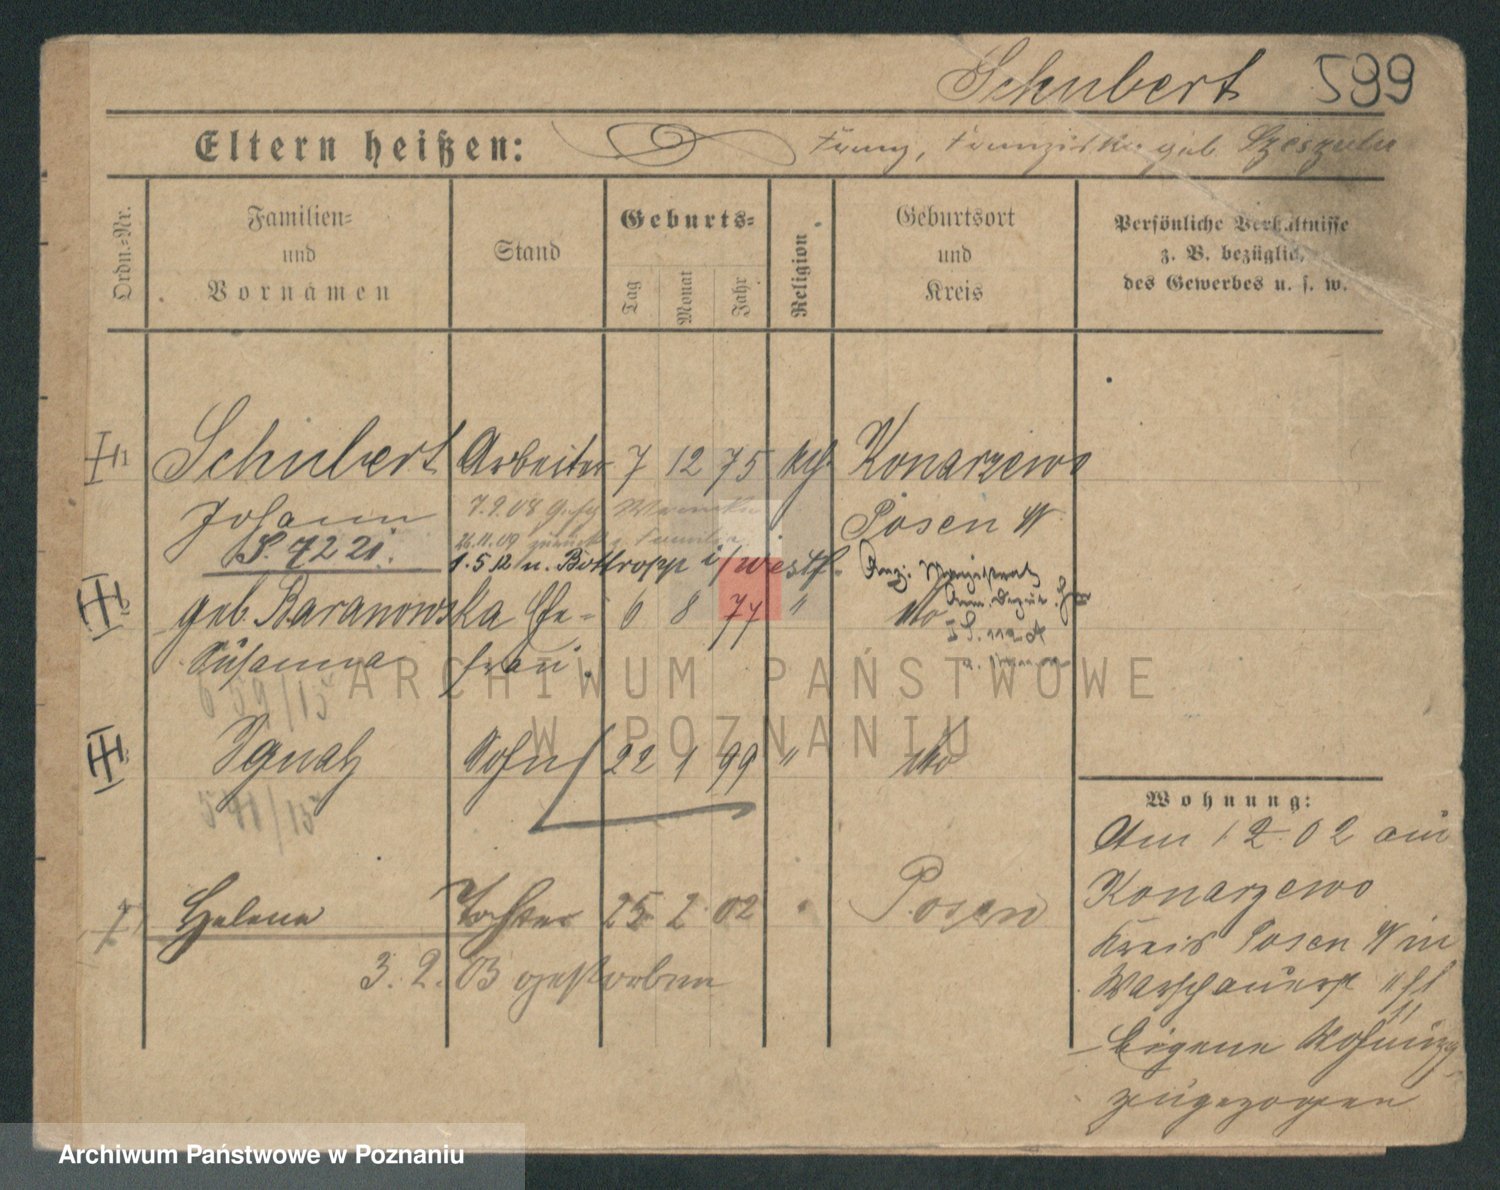 Schubert 599
Eltern heißen: Franz, Franziska geb
Ordn.-Nr.
Familien-
und
Vornamen
Stand
Geburts-
Tag
Monat
Jahr
Religion
Geburtsort
und
Kreis
Persönliche Verhältnisse
z. B. bezüglich
des Gewerbes u. s. w.
Schubert Arbeiter 7 12 75 kth Konarzewo
Johann Posen W
7.9.08
S. 7221.
26.11.09 zurück z. Familie
1.5.12 n. Bottropp i/westf.
geb. Baranowska Ehe- 6 8 77 " do
Susanna frau.
659/15
Ignatz Sohn 22 1 99 " do
541/15
Helene Tochter 25 2 02 " Posen
3. 2. 03 gestorben
Wohnung:
Am 1 2 02 aus
Konarzewo
Kreis Posen W in
Warschauerst
Eigene Wohnung
zugezogen
ARCHIWUM PAŃSTWOWE
W POZNANIU
Archiwum Państwowe w Poznaniu